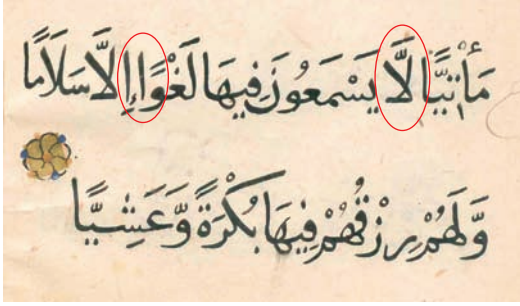 مَأْتِيًّا لَّا يَسْمَعُونَ فِيهَا لَغْوًا إِلَّا سَلَامًا
وَّلَهُمْ رِزْقُهُمْ فِيهَا بُكْرَةً وَّعَشِيًّا